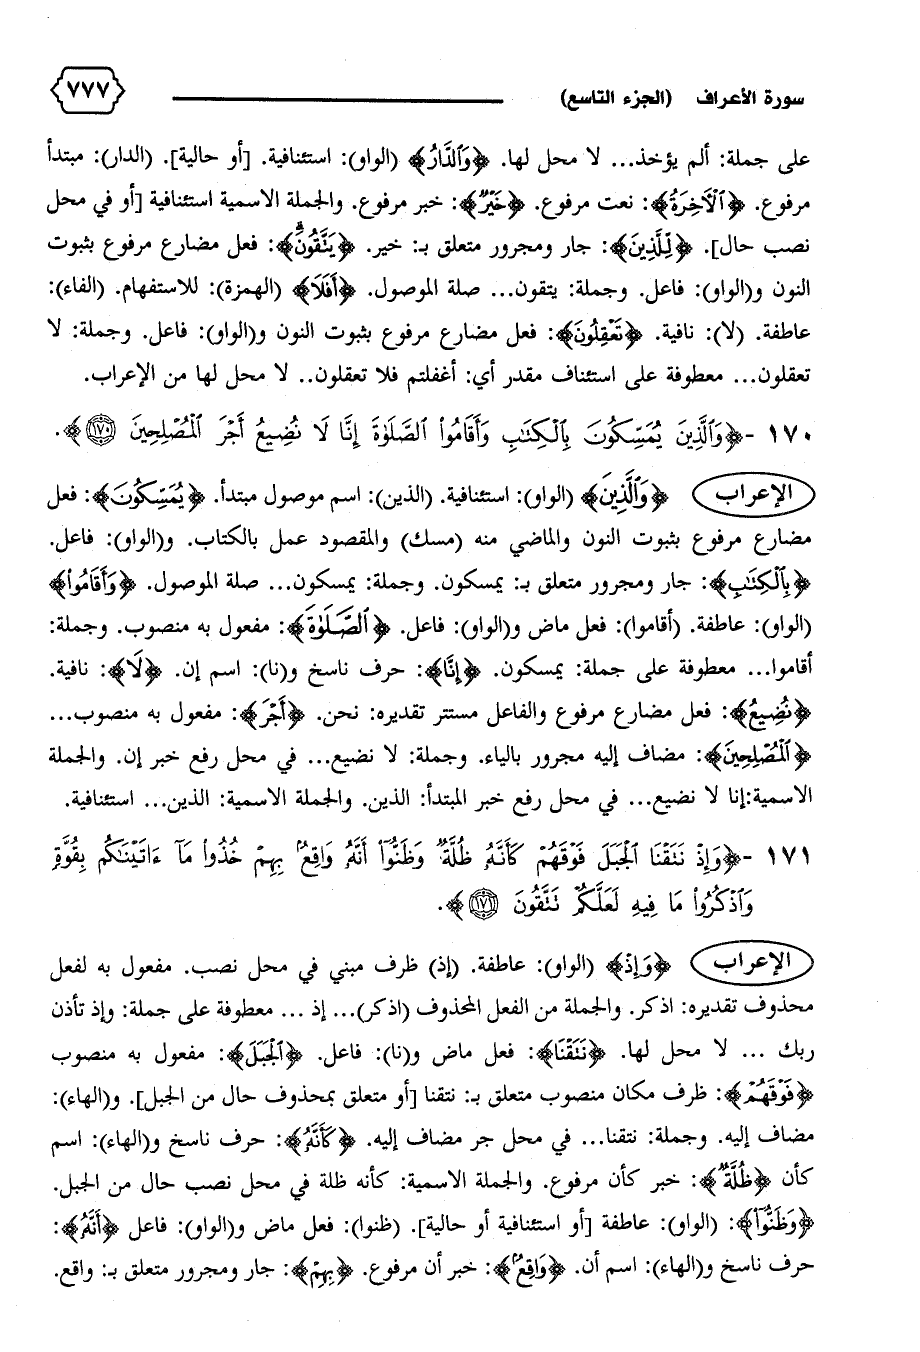 سورة الأعراف (الجزء التاسع) ٧٧٧
على جملة: ألم يؤخذ... لا محل لها. ﴿وَالدَّارُ﴾ (الواو): استئنافية. [أو حالية]. (الدار): مبتدأ
مرفوع. ﴿ٱلْأَخِرَةُ﴾: نعت مرفوع. ﴿خَيْرٌ﴾: خبر مرفوع. والجملة الاسمية استئنافية [أو في محل
نصب حال]. ﴿لِّلَّذِينَ﴾: جار ومجرور متعلق بـ: خير. ﴿يَتَّقُونَ﴾: فعل مضارع مرفوع بثبوت
النون و(الواو): فاعل. وجملة: يتقون... صلة الموصول. ﴿أَفَلَا﴾ (الهمزة): للاستفهام. (الفاء):
عاطفة. (لا): نافية. ﴿تَعْقِلُونَ﴾: فعل مضارع مرفوع بثبوت النون و(الواو): فاعل. وجملة: لا
تعقلون... معطوفة على استئناف مقدر أي: أغفلتم فلا تعقلون.. لا محل لها من الإعراب.
١٧٠ -﴿وَٱلَّذِينَ يُمَسِّكُونَ بِٱلْكِتَٰبِ وَأَقَامُوا۟ ٱلصَّلَوٰةَ إِنَّا لَا نُضِيعُ أَجْرَ ٱلْمُصْلِحِينَ ١٧٠﴾.
الإعراب ﴿وَٱلَّذِينَ﴾ (الواو): استئنافية. (الذين): اسم موصول مبتدأ. ﴿يُمَسِّكُونَ﴾: فعل
مضارع مرفوع بثبوت النون والماضي منه (مسك) والمقصود عمل بالكتاب. و(الواو): فاعل.
﴿بِٱلْكِتَٰبِ﴾: جار ومجرور متعلق بـ: يمسكون. وجملة: يمسكون... صلة الموصول. ﴿وَأَقَامُوا۟﴾
(الواو): عاطفة. (أقاموا): فعل ماض و(الواو): فاعل. ﴿ٱلصَّلَوٰةَ﴾: مفعول به منصوب. وجملة:
أقاموا... معطوفة على جملة: يمسكون. ﴿إِنَّا﴾: حرف ناسخ و(نا): اسم إن. ﴿لَا﴾: نافية.
﴿نُضِيعُ﴾: فعل مضارع مرفوع والفاعل مستتر تقديره: نحن. ﴿أَجْرَ﴾: مفعول به منصوب...
﴿ٱلْمُصْلِحِينَ﴾: مضاف إليه مجرور بالياء. وجملة: لا نضيع... في محل رفع خبر إن. والجملة
الاسمية:إنا لا نضيع... في محل رفع خبر المبتدأ: الذين. والجملة الاسمية: الذين... استئنافية.
١٧١ -﴿وَإِذْ نَتَقْنَا ٱلْجَبَلَ فَوْقَهُمْ كَأَنَّهُۥ ظُلَّةٌ وَظَنُّوٓا۟ أَنَّهُۥ وَاقِعٌۢ بِهِمْ خُذُوا۟ مَآ ءَاتَيْنَٰكُم بِقُوَّةٍ
وَٱذْكُرُوا۟ مَا فِيهِ لَعَلَّكُمْ تَتَّقُونَ ١٧١﴾.
الإعراب ﴿وَإِذْ﴾ (الواو): عاطفة. (إذ) ظرف مبني في محل نصب. مفعول به لفعل
محذوف تقديره: اذكر. والجملة من الفعل المحذوف (اذكر)... إذ ... معطوفة على جملة: وإذ تأذن
ربك ... لا محل لها. ﴿نَتَقْنَا﴾: فعل ماض و(نا): فاعل. ﴿ٱلْجَبَلَ﴾: مفعول به منصوب
﴿فَوْقَهُمْ﴾: ظرف مكان منصوب متعلق بـ: نتقنا [أو متعلق بمحذوف حال من الجبل]. و(الهاء):
مضاف إليه. وجملة: نتقنا... في محل جر مضاف إليه. ﴿كَأَنَّهُۥ﴾: حرف ناسخ و(الهاء): اسم
كأن ﴿ظُلَّةٌ﴾: خبر كأن مرفوع. والجملة الاسمية: كأنه ظلة في محل نصب حال من الجبل.
﴿وَظَنُّوٓا۟﴾: (الواو): عاطفة [أو استئنافية أو حالية]. (ظنوا): فعل ماض و(الواو): فاعل ﴿أَنَّهُۥ﴾:
حرف ناسخ و(الهاء): اسم أن. ﴿وَاقِعٌۢ﴾: خبر أن مرفوع. ﴿بِهِمْ﴾: جار ومجرور متعلق بـ: واقع.